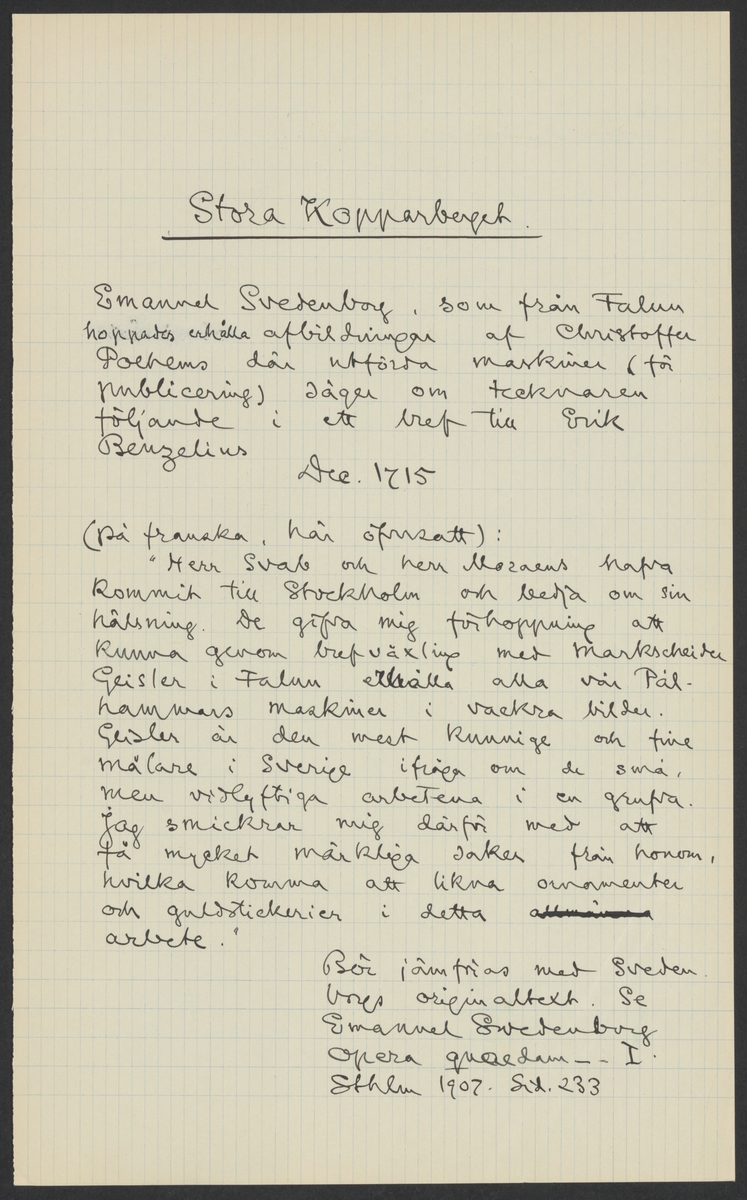 Stora Kopparberget.
Emanuel Svedenborg, som från Falun
hoppades erhålla afbildningar af Christoffer
Polhems där utförda maskiner (för
publicering) säger om tecknaren
följande i ett bref till Erik
Benzelius
Dec. 1715
(på franska, här öfvrsatt):
"Herr Svab och herr Moraeus hafva
kommit till Stockholm och bedja om sin
hälsning. De gifva mig förhoppning att
kunna genom brefväxling med Markscheider
Geisler i Falun erhålla alla vår Pål-
hammars maskiner i vackra bilder.
Geisler är den mest kunnige och fine
målare i Sverige ifråga om de små,
men vidlyftiga arbetena i en grufva.
Jag smickrar mig därför med att
få mycket märkliga saker från honom,
hvilka komma att likna ornamenter
och guldstickerier i detta
arbete."
Bör jämföras med Sveden
borgs originaltext. Se
Emanuel Swedenborg
Opera quaedam -- I.
Sthlm 1907. Sid. 233